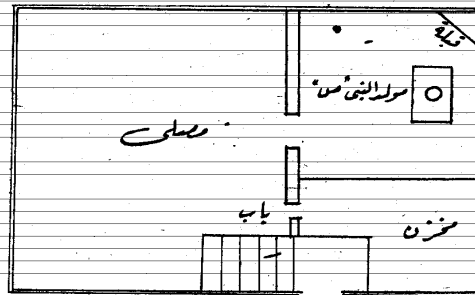 قبلة
مولد النبی "ص"
مصلى
باب
مخزن